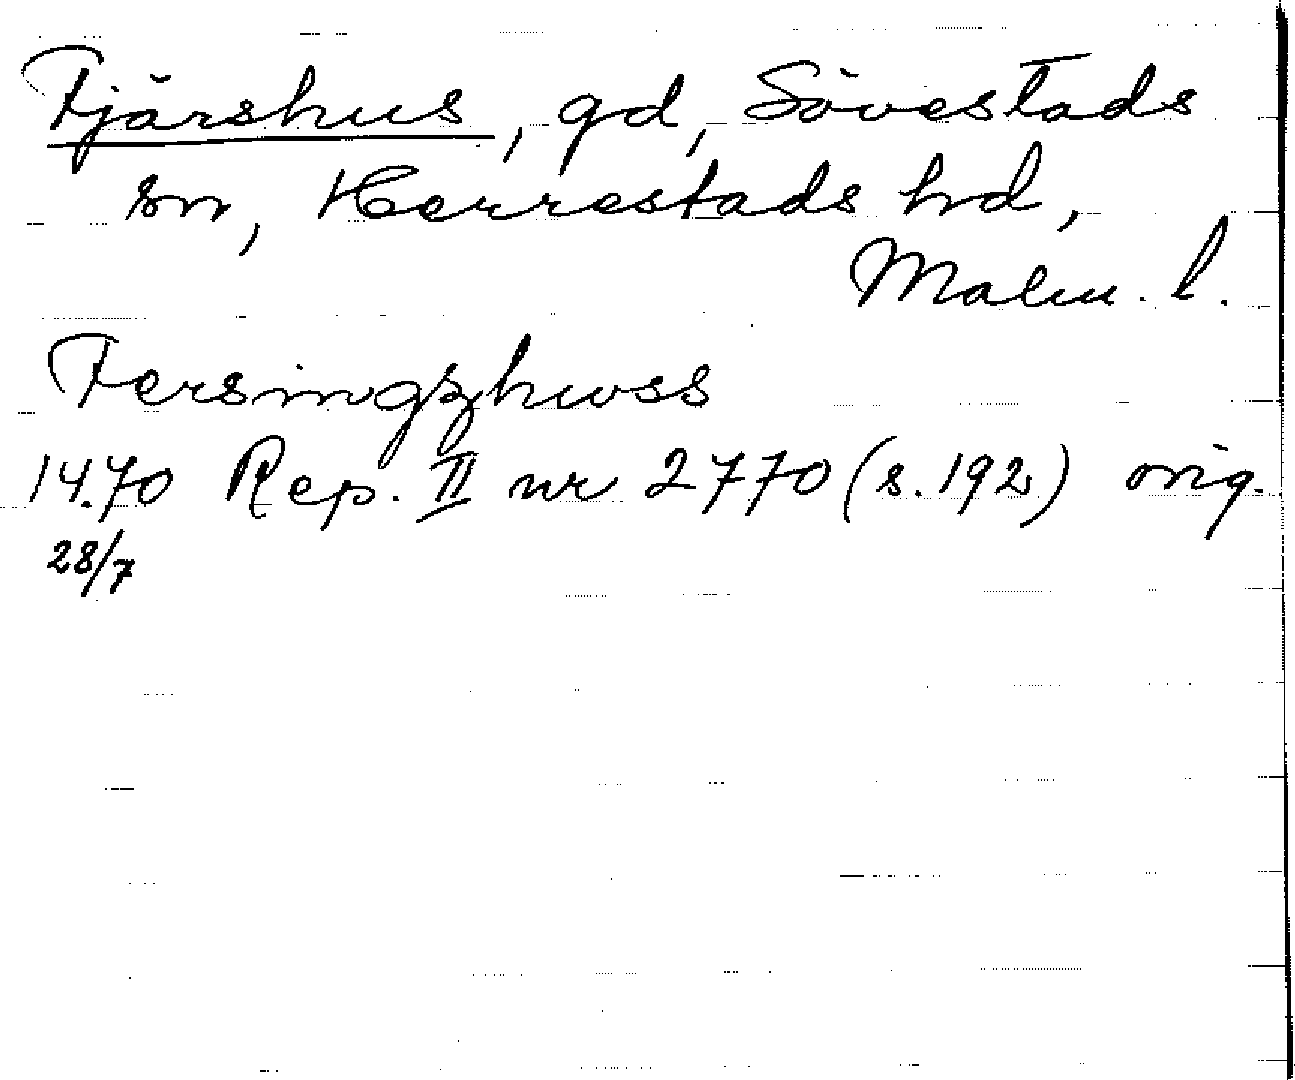 Fjärshus, gd, Sövestads
sn, Herrestads hd,
Malm. l.
Fersingzhwss
1470 Rep. II nr 2770 (s. 192) orig.
28/7